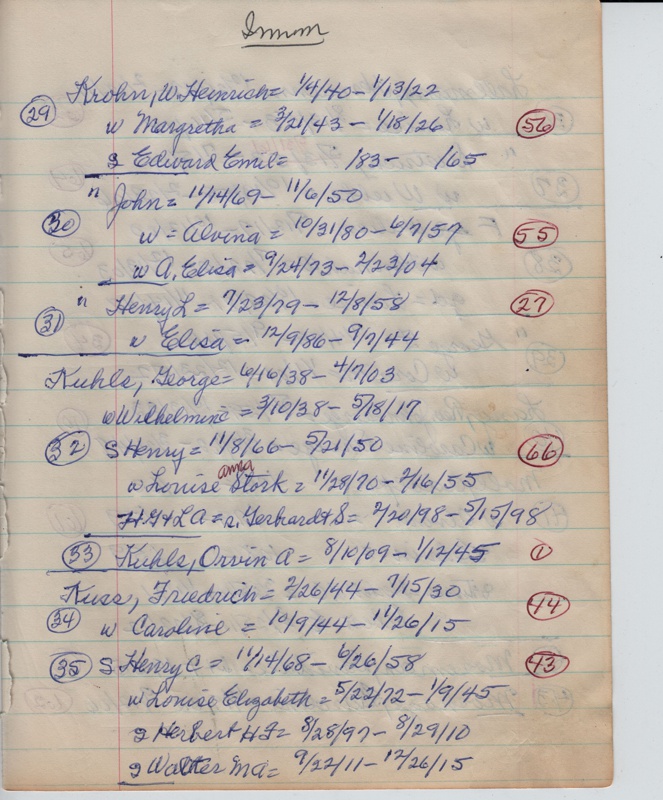 Immm
29 Krohn, W. Heinrich = 1/4/40 - 1/13/22
w Margretha = 3/21/43 - 1/18/26 56
g Edward Emil = /83 - /65
" John = 11/14/69 - 11/6/50
30 w = Alvina = 10/31/80 - 6/7/57 55
w A. Elisa = 9/24/73 - 2/23/04
" Henry L = 7/23/79 - 12/8/58 27
31 w Elisa = 12/9/86 - 9/7/44
Kuhls, George = 6/16/38 - 4/7/03
w Wilhelmine = 3/10/38 - 5/18/17
32 S Henry = 11/8/66 - 5/21/50 66
anna
w Louise Stork = 11/28/70 - 2/16/55
H.G + L A = s, Gerhardt S = 2/20/98 - 5/15/98
33 Kuhls, Orvin A = 8/10/09 - 1/12/45 1
Kuss, Friedrich = 2/26/44 - 7/15/30 44
34 w Caroline = 10/9/44 - 11/26/15
35 S Henry C = 11/14/68 - 6/26/58 43
w Louise Elizabeth = 5/22/72 - 1/9/45
g Herbert H F = 8/28/97 - 8/29/10
g Walter MA = 9/22/11 - 12/26/15